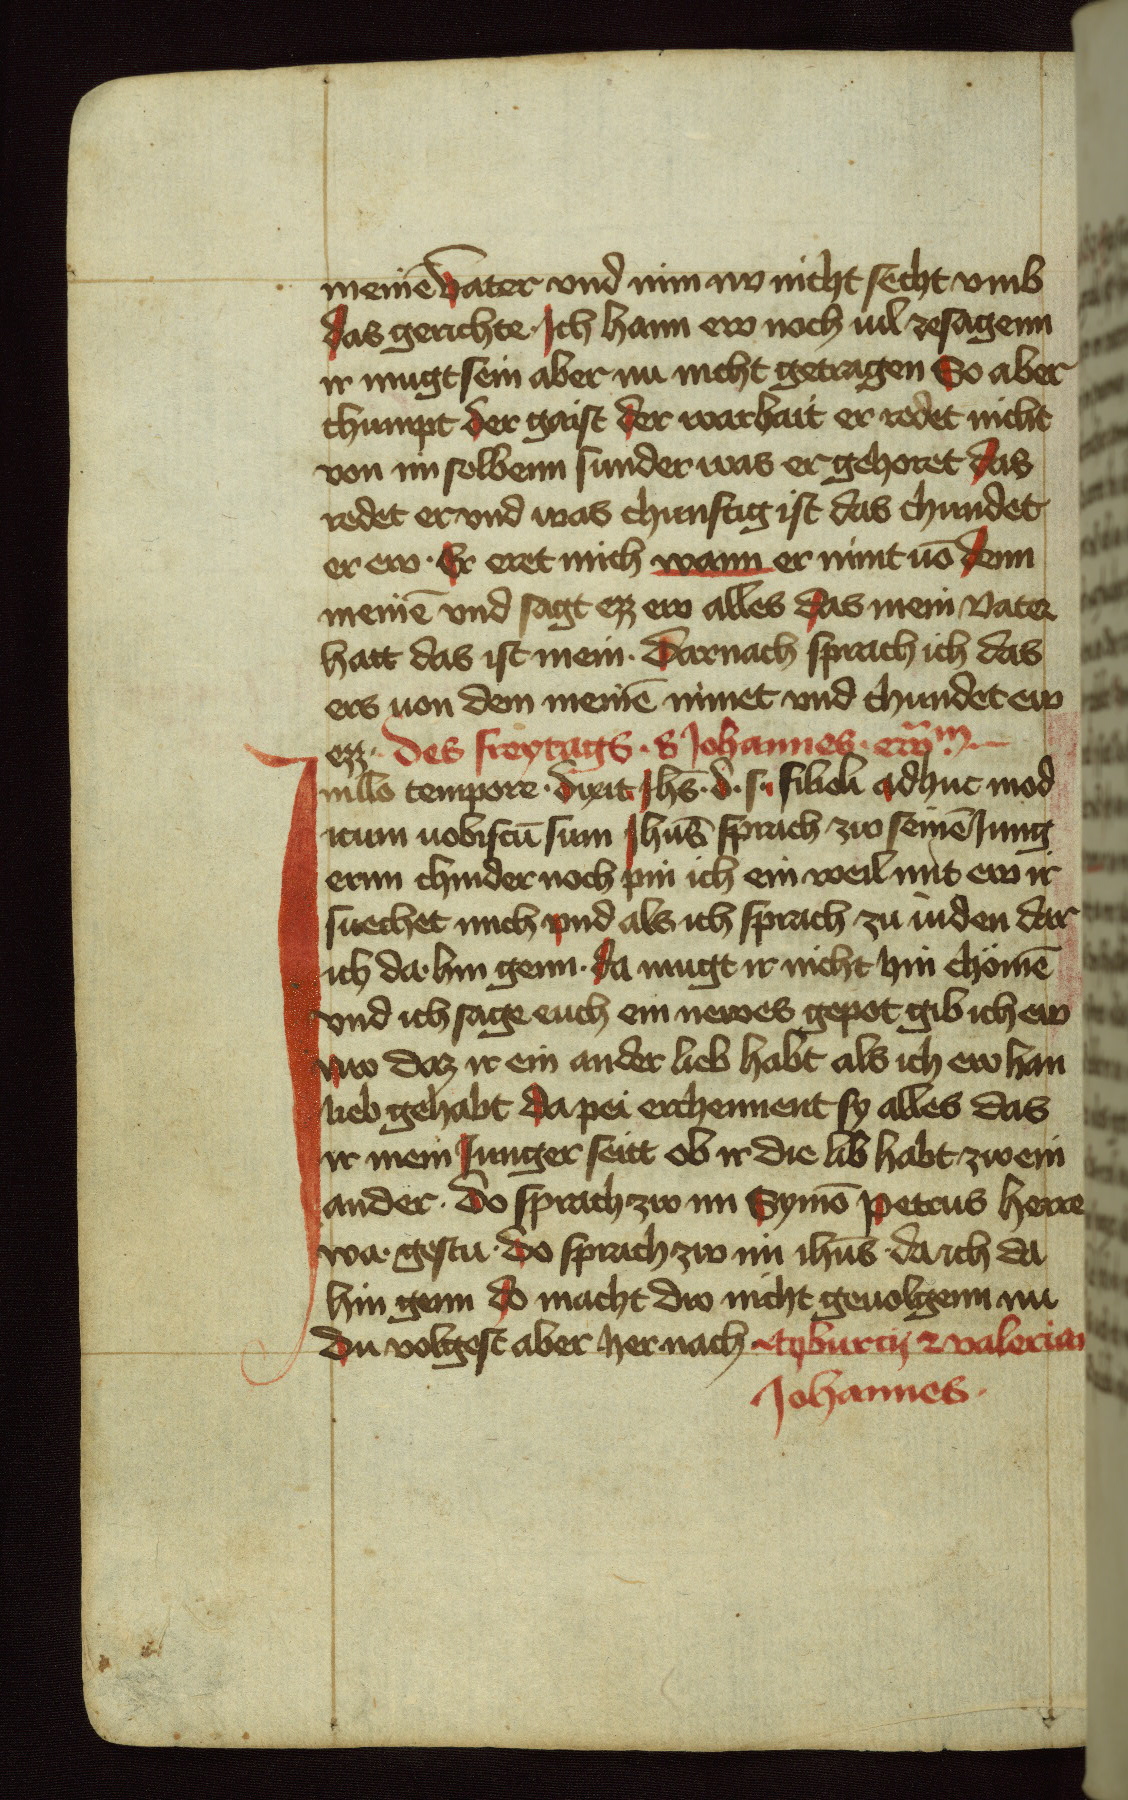 meinē vater vnd nim nv nicht secht vmb
das gerichte· Ich hann ew noch uil zesagenn
ir mugt sein aber nu nicht getragen So aber
chumpt der gaist der warhait er redet nicht
von im selbenn sunder was er gehoret das
redet er vnd was chunftig ist das chundet
er ew· Er eret mich wann er nimt uō denn
meinē vnd sagt ezz ew alles das mein vater
hatt das ist mein· Darnach sprach ich das
ers uon dem meinē nimet vnd chundet ew
ezz· Des freytags· S Johannes·
Inillo tempore· dixit Jhs̄· d· s· filioli adhuc mod
icum uobiscū sum Jhūs sprach zw seinē Jung
ernn chinder noch pin ich ein weil mit ew ir
suechet mich vnd als ich sprach zu iuden dar
ich da·hin genn· da mugt ir nicht hin chömē
vnd ich sage euch ein newes gepot gib ich ew
nw daz ir ein ander lieb habt als ich ew han
lieb gehabt da pei erchennent sy alles das
ir mein Junger seitt ob ir die lib habt zw ein
ander· Do sprach zw im Symō petrus herre
wa· gestu· Do sprach zw im ihūs· da ich da
hin genn do macht dw nicht geuolgenn nu
du volgest aber her nach· Tyburcij & valerian
Johannes·